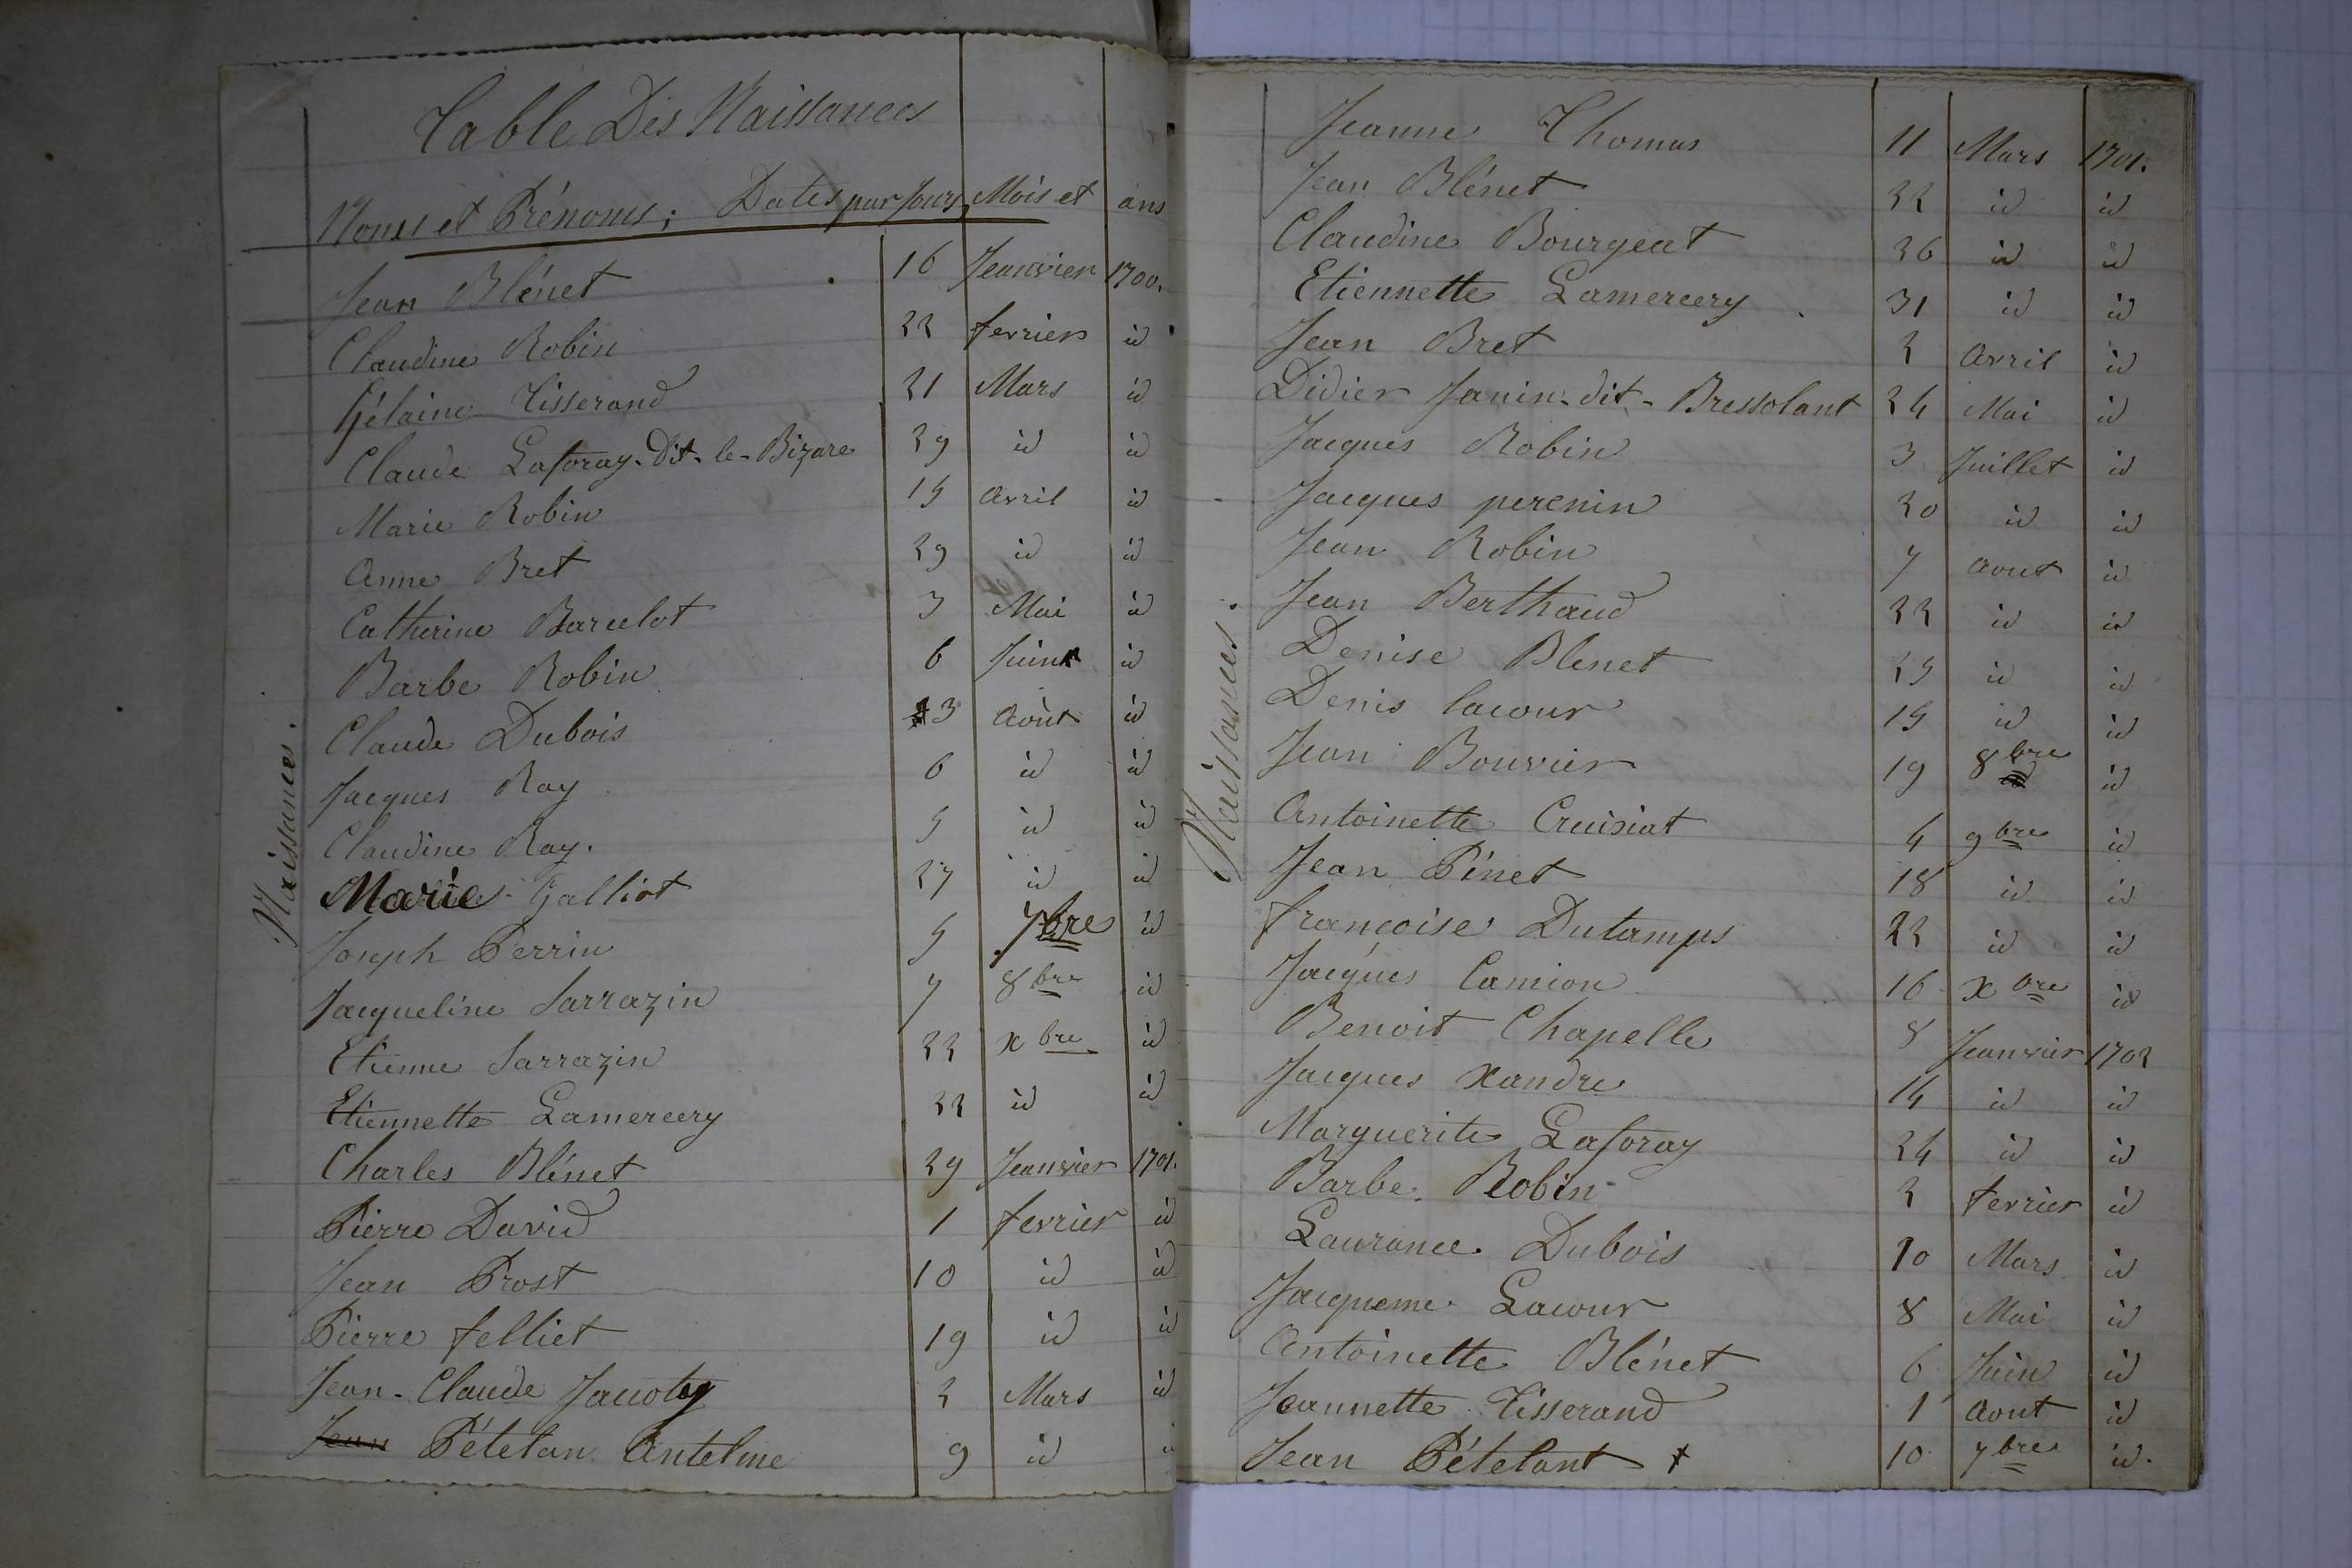 Table Des Naissances
Noms et Prénoms; Dates par Jours, Mois et ans
Naissances.
Jean Blénet 16 Jeanvier 1700.
Claudine Robin 22 fevrier id
Gélaine Tisserand 21 Mars id
Claude Laforay-Dit-le-Bizare 29 id id
Marie Robin 15 Avril id
Anne Bret 29 id id
Catherine Barcelot 3 Mai id
Barbe Robin 6 Juin id
Claude Dubois 3 Août id
Jacques Ray 6 id id
Claudine Ray. 5 id id
Marie Galliot 27 id id
Joseph Perrin 5 7bre id
Jacqueline Sarrazin 7 8bre id
Etienne Sarrazin 22 xbre id
Etiennette Lamercery 22 id id
Charles Blénet 29 Jeanvier 1701.
Pierre David 1 fevrier id
Jean Prost 10 id id
Pierre felliet 19 id id
Jean-Claude 2 Mars id
Jean Pételan Antelme 9 id
Naissances.
Jeanne Thomas 11 Mars 1701.
Jean Blénet 22 id id
Claudine Bourgeat 26 id id
Etiennette Lamercery 31 id id
Jean Bret 2 Avril id
Didier Janin-dit-Bressolant 24 Mai id
Jacques Robin 3 Juillet id
Jacques perenin 20 id id
Jean Robin 7 Aout id
Jean Berthaud 22 id id
Denise Blenet 25 id id
Denis lacour 15 id id
Jean Bouvier 19 8bre id
Antoinette Cruisiat 4 9bre id
Jean Pénet 18 id id
françoise Dutamps 22 id id
Jacques Camion 16 xbre id
Benoit Chapelle 8 Jeanvier 1702
Jacques Xandre 14 id id
Marguerite Laforay 24 id id
Barbe Robin 2 fevrier id
Laurance Dubois 10 Mars id
Jacqueme Lacour 8 Mai id
Antoinette Blénet 6 Juin id
Jeannette Tisserand 1 Aout id
Jean Pételant 10 7bre id.